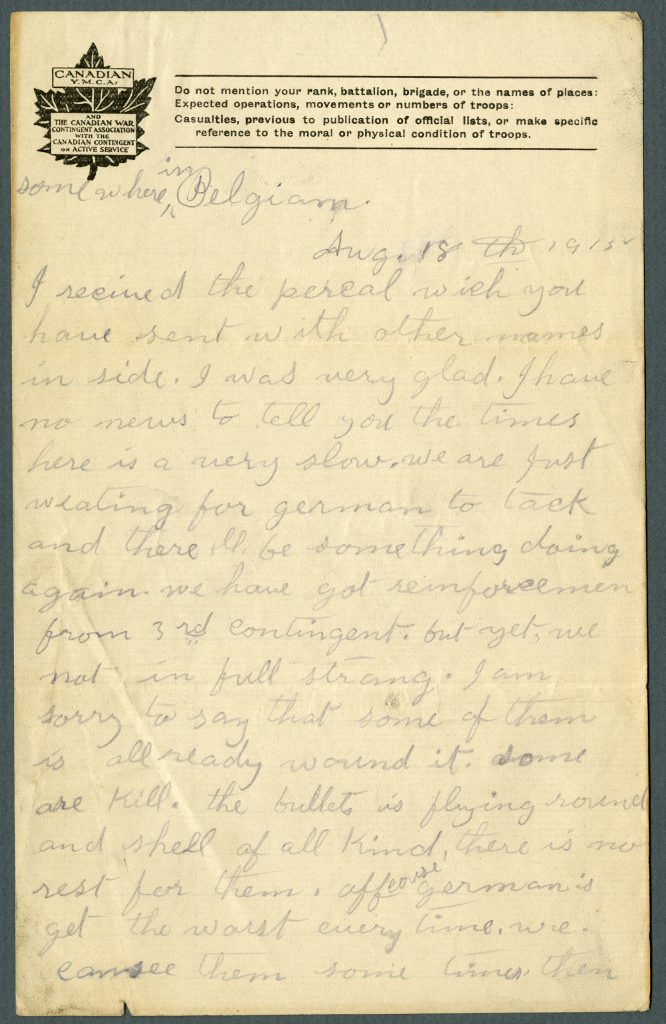 CANADIAN
Y.M.C.A.
AND
THE CANADIAN WAR
CONTINGENT ASSOCIATION
WITH THE
CANADIAN CONTINGENT
ON ACTIVE SERVICE
Do not mention your rank, battalion, brigade, or the names of places:
Expected operations, movements or numbers of troops:
Casualties, previous to publication of official lists, or make specific
reference to the moral or physical condition of troops.
some where in Belgiam.
Aug. 18 th 1915
I recived the percal wich you
have sent with other names
in side. I was very glad. I have
no news to tell you the times
here is a very slow. we are Just
weating for german to tack
and there ll be something doing
again. we have got reinforcemen
from 3 rd contingent. but yet, we
not in full strang. I am
sorry to say that some of them
is allready wound it. some
are Kill. the bullets is flying round
and shell of all Kind, there is no
rest for them. off course german is
get the worst every time. we.
can see them some times. then